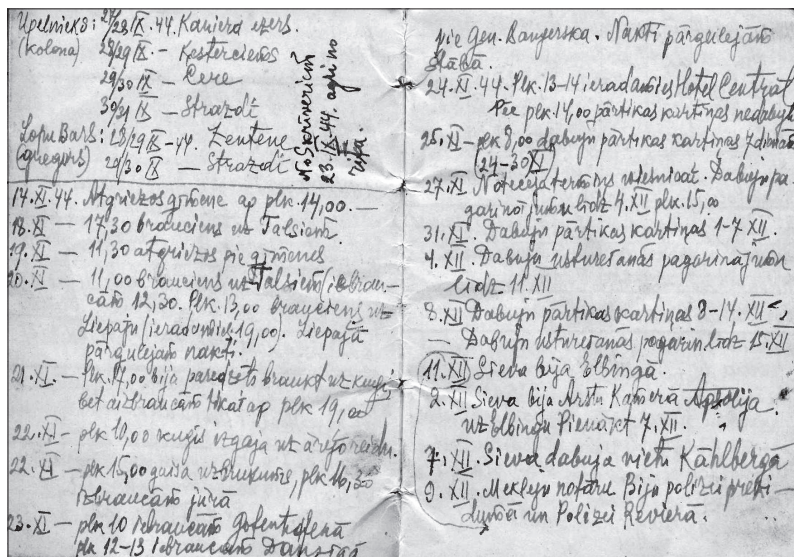 Upelnieks: 27/28 IX. 44. Kaņiera ezers.
(kolona) 28/29 IX – Ķesterciems
29/30 IX – Cere
30/31 IX – Strazdē
Lopu Bars: 28/29 IX – 44. Zentene
(gregors) 29/30 IX – Strazdē
No Skrīveriem
23. IX 44. agri no
rīta.
17. XI. 44. Atgriezos ģimenē ap plk. 14,00. —
18. XI — 17,30 brauciens uz Talsiem.
19. XI — 11,30 atgriezos pie ģimenes
20. XI — 11,00 brauciens uz Talsiem (iebrau-
cām 12,30. Plk. 13,00 brauciens uz
Liepāju (ieradāmies 19,00). Liepājā
pārgulējām nakti.
21. XI. — Plk. 14,00 bija paredzēts braukt uz kuģi,
bet aizbraucām tikai ap plk 19,00
22. XI — plk 10,00 kuģis izgāja uz ārējo reidu.
22. XI — plk 15,00 gaisa uzbrukums, plk 16,30
izbraucām jūrā
23. XI — plk 10 iebraucām Gotenhafenā
plk 12-13 iebraucām Danzigā
pie Gen. Bangerska. Nakti pārgulējām
Štābā.
24. XI. 44. Plk. 13-14 ieradāmies Hotel Central
Pēc plk. 14,00 pārtikas kartiņas nedabūju
25. XI — plk 9,00 dabūju pārtikas kartiņas 7 dienām
(24–30 XI)
27. XI. Notecēja termiņš viesnīcai. Dabūju pa-
garinājumu līdz 4. XII plk. 15,00
31. XI. Dabūju pārtikas kartiņas 1-7 XII.
4. XII. Dabūju uzturēšanās pagarinājumu
līdz 11. XII
8. XII Dabūju pārtikas kartiņas 8-14. XII
— Dabūju uzturēšanās pagarin. līdz 15. XII
11. XII Sieva bija Elbingā.
2. XII Sieva bija Ārstu Kamerā. Apsolīja
uz Elbingu Pienākt 7. XII.
7. XII. Sieva dabūja vietu Kāhlbergā
9. XII. Meklēju notāru Biju polizei prezi-
dijumā un Polizei Revierā.